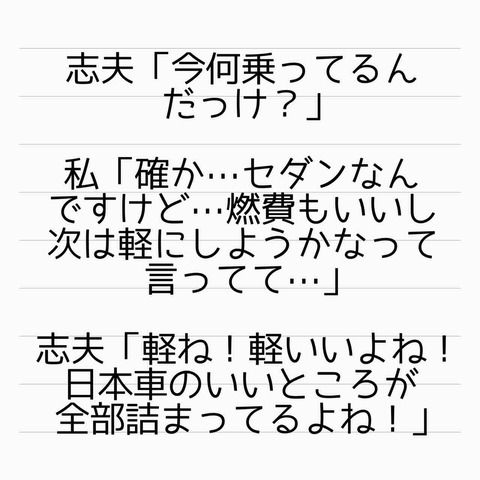 志夫「今何乗ってるん
だっけ？」
私「確か…セダンなん
ですけど…燃費もいいし
次は軽にしようかなって
言ってて…」
志夫「軽ね！軽いいよね！
日本車のいいところが
全部詰まってるよね！」